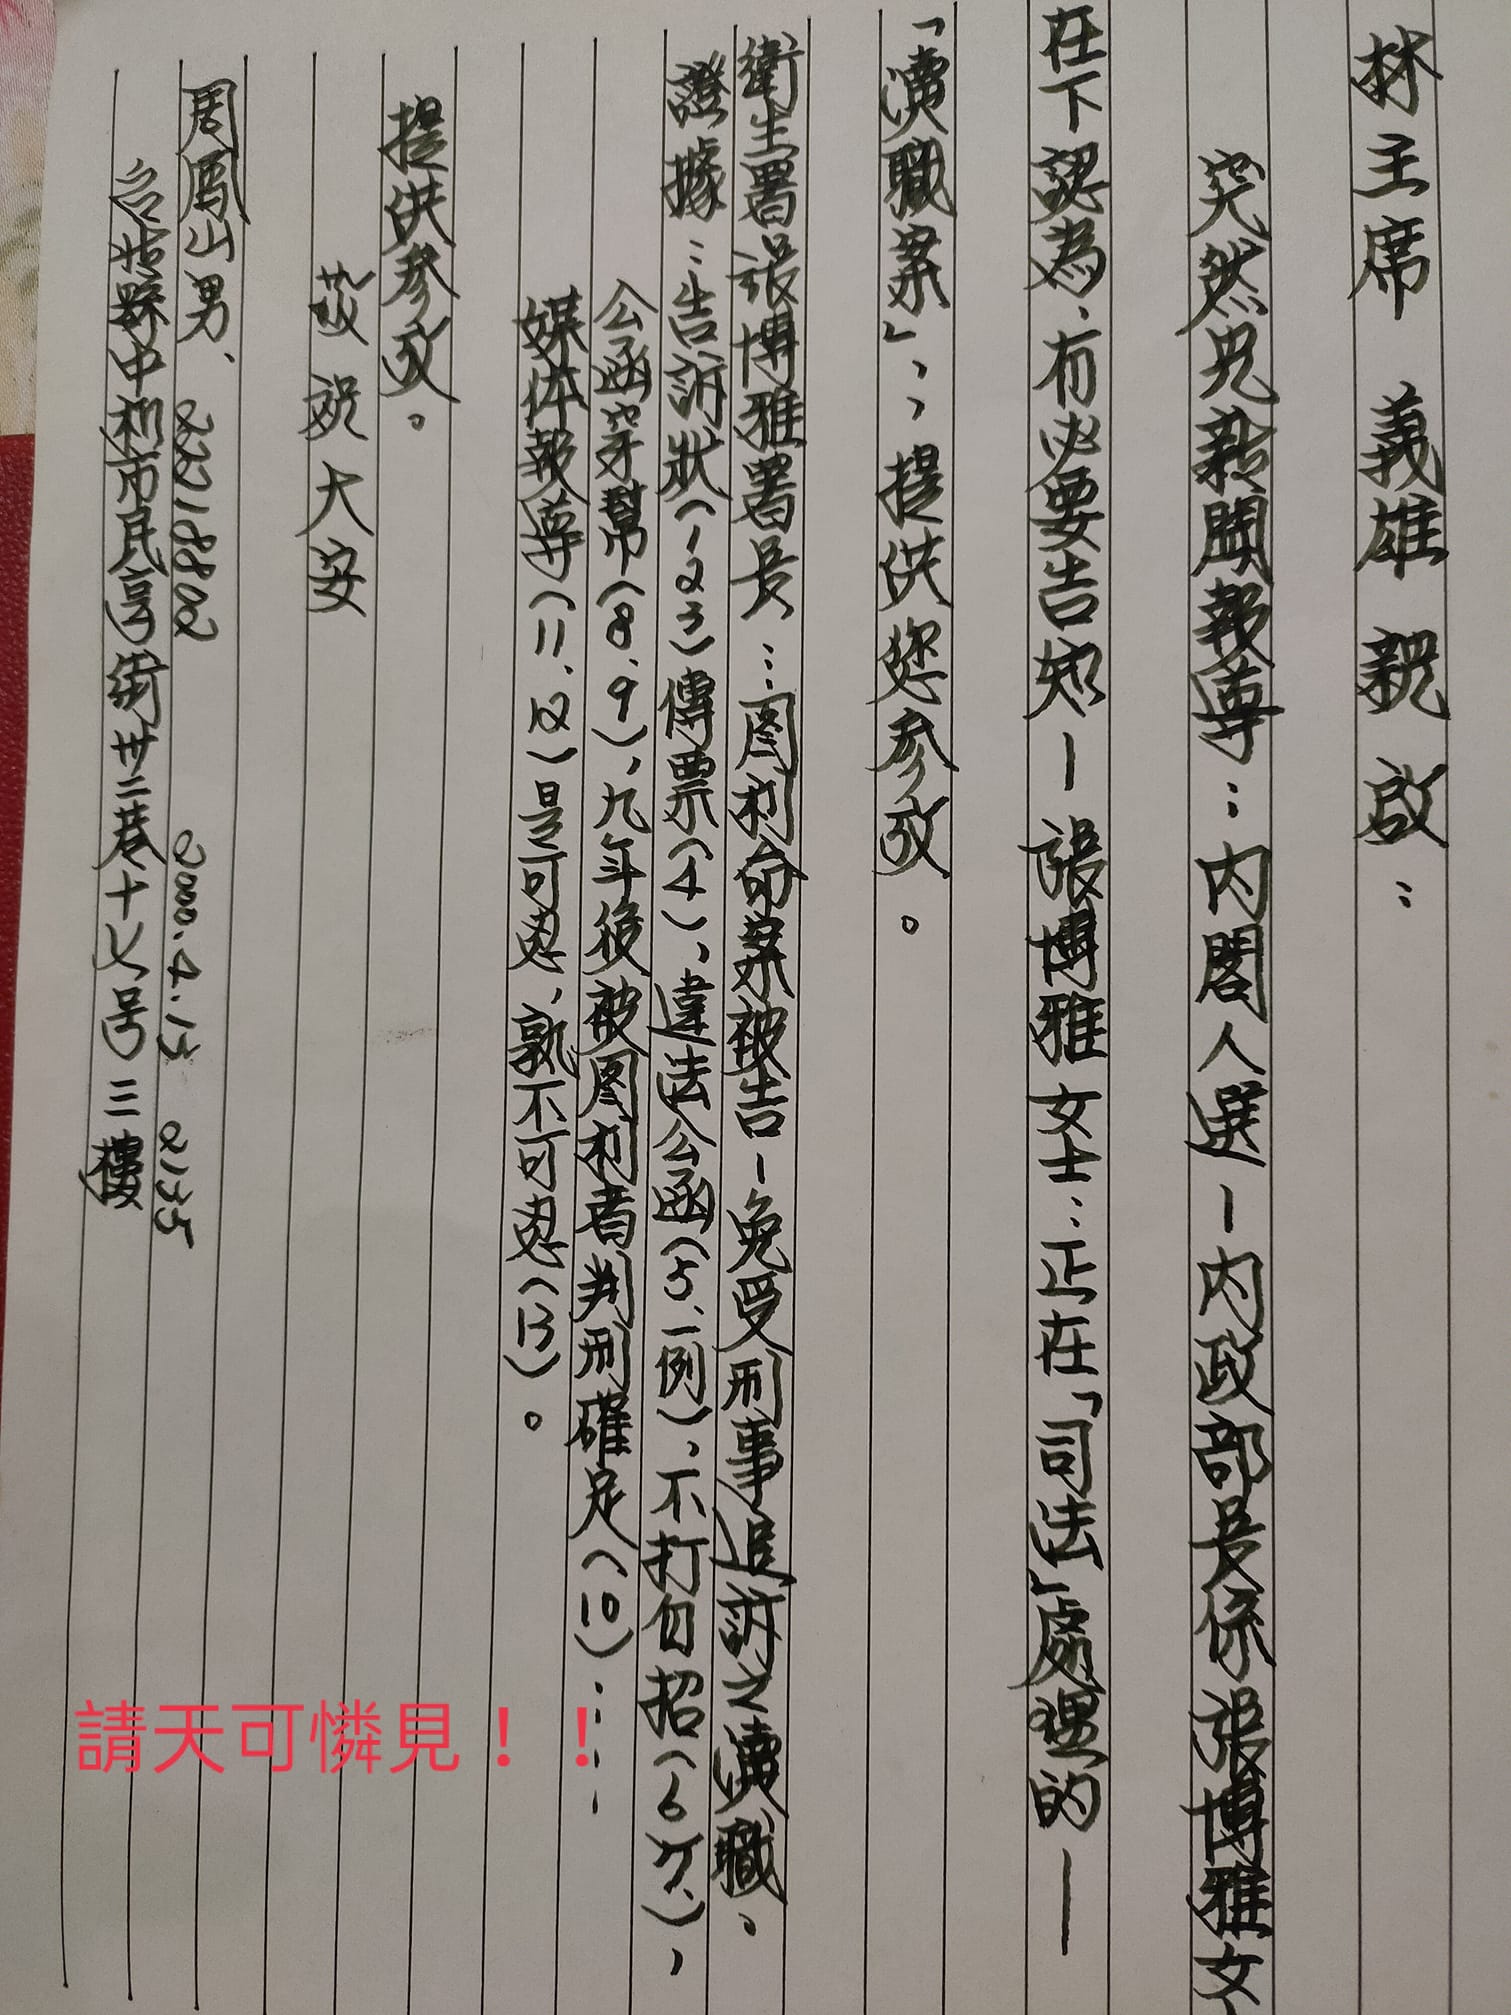 林主席 義雄 親啟：
突然見新聞報導：內閣人選－內政部長係張博雅女
在下認為，有必要告知－張博雅女士：正在「司法」處理的－
「瀆職案」；，提供您參攷。
衛生署張博雅署長…图利命案被告－免受刑事追訴之瀆職。
證據：告訴狀（1 2 3）傳票（4），違法公函（5、一例），不打自招（6 7、），
公函穿幫（8、9），九年後被图利者判刑確定（10）……
媒体報導（11、12）是可忍，孰不可忍（13）。
提供參攷。
敬祝大安
周鳳山男、2218802 2000.4.15 2135
台北縣中和市民享街卅二巷十七号三樓
請天可憐見！！